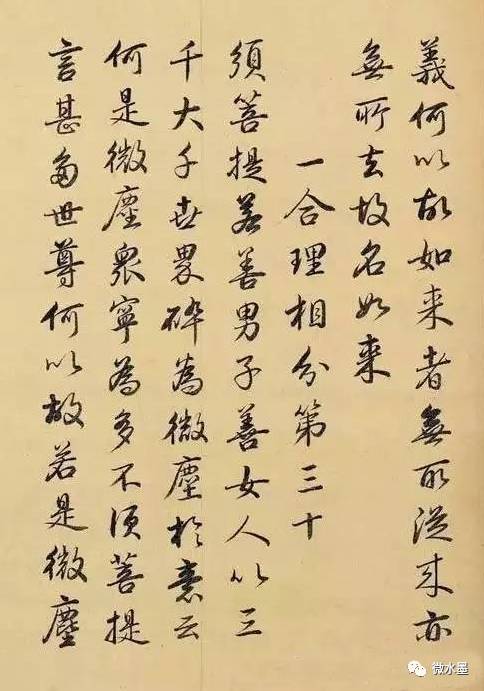 義何以故如来者無所従来亦
無所去故名如来
一合理相分第三十
須菩提若善男子善女人以三
千大千世界碎為微塵於意云
何是微塵衆寧為多不須菩提
言甚多世尊何以故若是微塵
微水墨